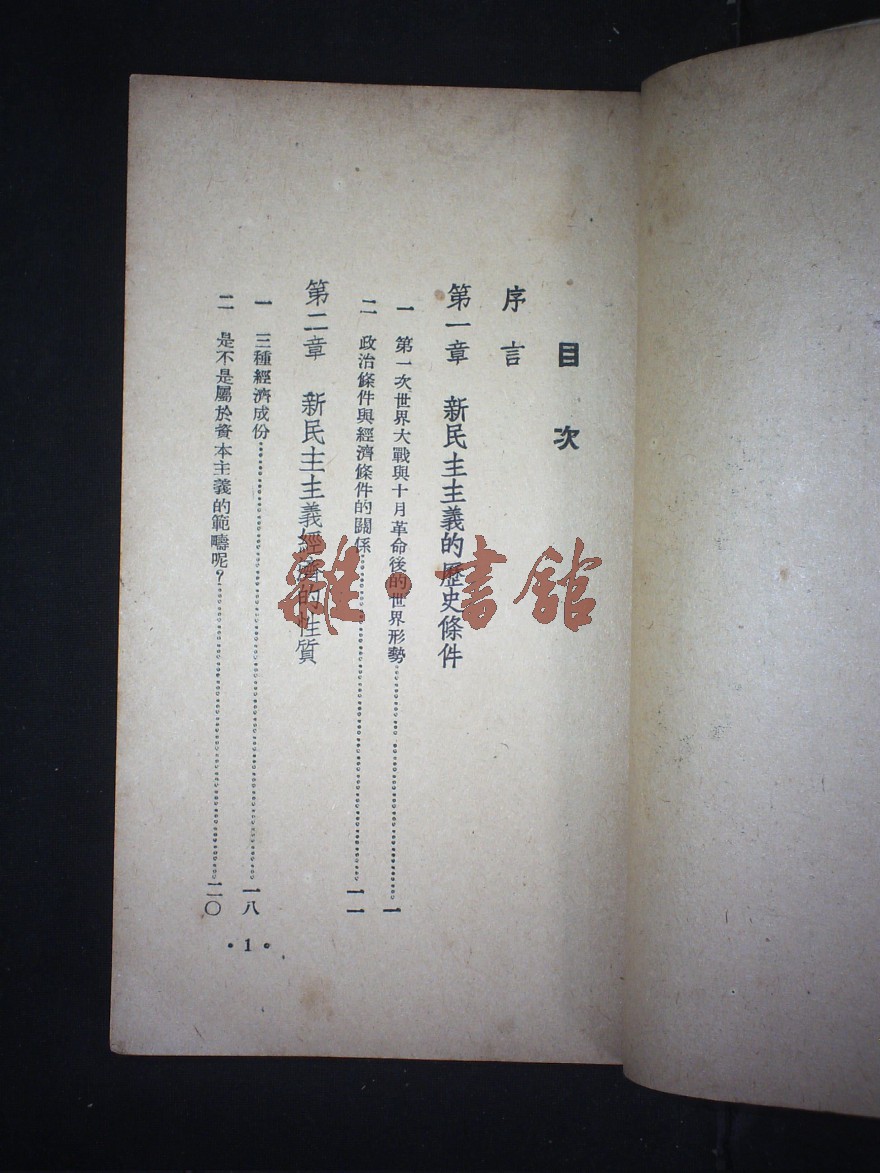 目次
序言
第一章 新民主主義的歷史條件
一 第一次世界大戰與十月革命後的世界形勢……一
二 政治條件與經濟條件的關係……一一
第二章 新民主主義經濟的性質
一 三種經濟成份……一八
二 是不是屬於資本主義的範疇呢？……二〇
•1•
雜•書館